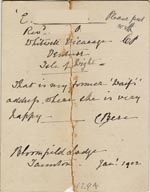 Please put
with
"E.
Revd
Whitwell Vicarage
Ventnor
Isle of Wight
That is my former "Waif's"
address, where she is very
happy —
Bloomfield Lodge
Taunton. Jany 1902